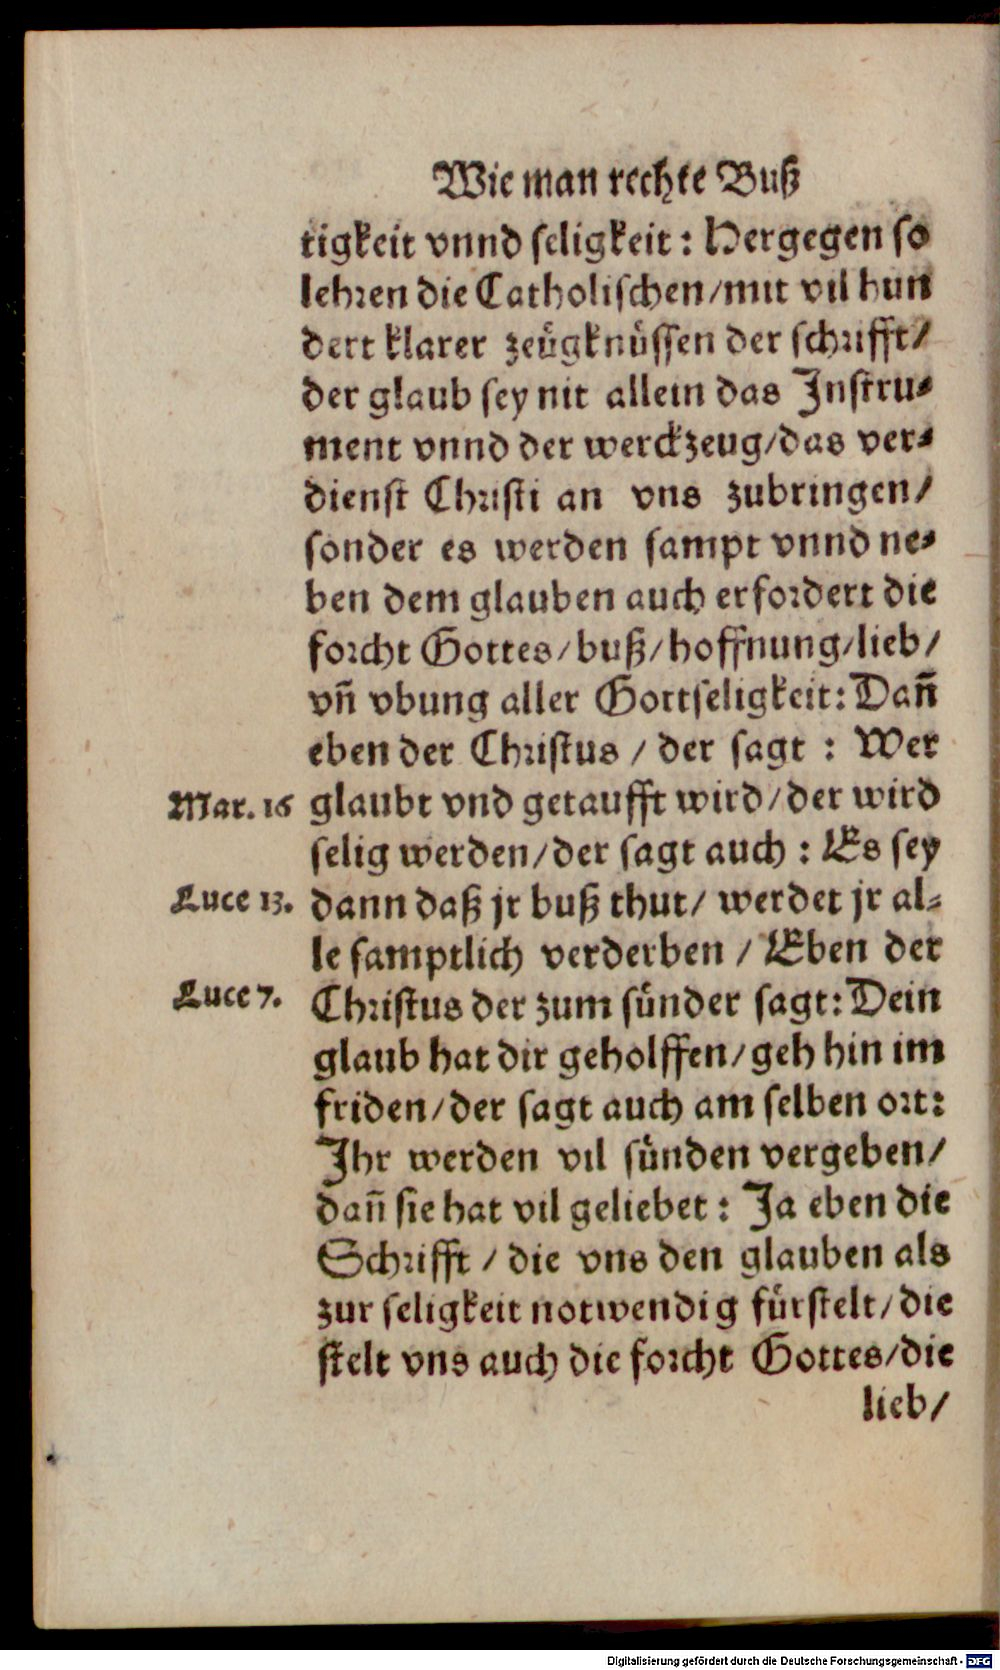 Wie man rechte Buß
tigkeit vnnd seligkeit: Hergegen so
lehren die Catholischen/mit vil hun
dert klarer zeügknüssen der schrifft/
der glaub sey nit allein das Instru⸗
ment vnnd der werckzeug/das ver⸗
dienst Christi an vns zubringen/
sonder es werden sampt vnnd ne⸗
ben dem glauben auch erfordert die
forcht Gottes/buß/hoffnung/lieb/
vñ vbung aller Gottseligkeit: Dañ
eben der Christus / der sagt : Wer
Mar. 16 glaubt vnd getaufft wird/der wird
selig werden/der sagt auch : Es sey
Luce 13. dann daß jr buß thut/ werdet jr al⸗
le samptlich verderben / Eben der
Luce 7. Christus der zum sünder sagt: Dein
glaub hat dir geholffen/geh hin im
friden/der sagt auch am selben ort:
Ihr werden vil sünden vergeben/
dañ sie hat vil geliebet : Ja eben die
Schrifft / die vns den glauben als
zur seligkeit notwendig fürstelt/die
stelt vns auch die forcht Gottes/die
lieb/
Digitalisierung gefördert durch die Deutsche Forschungsgemeinschaft - DFG